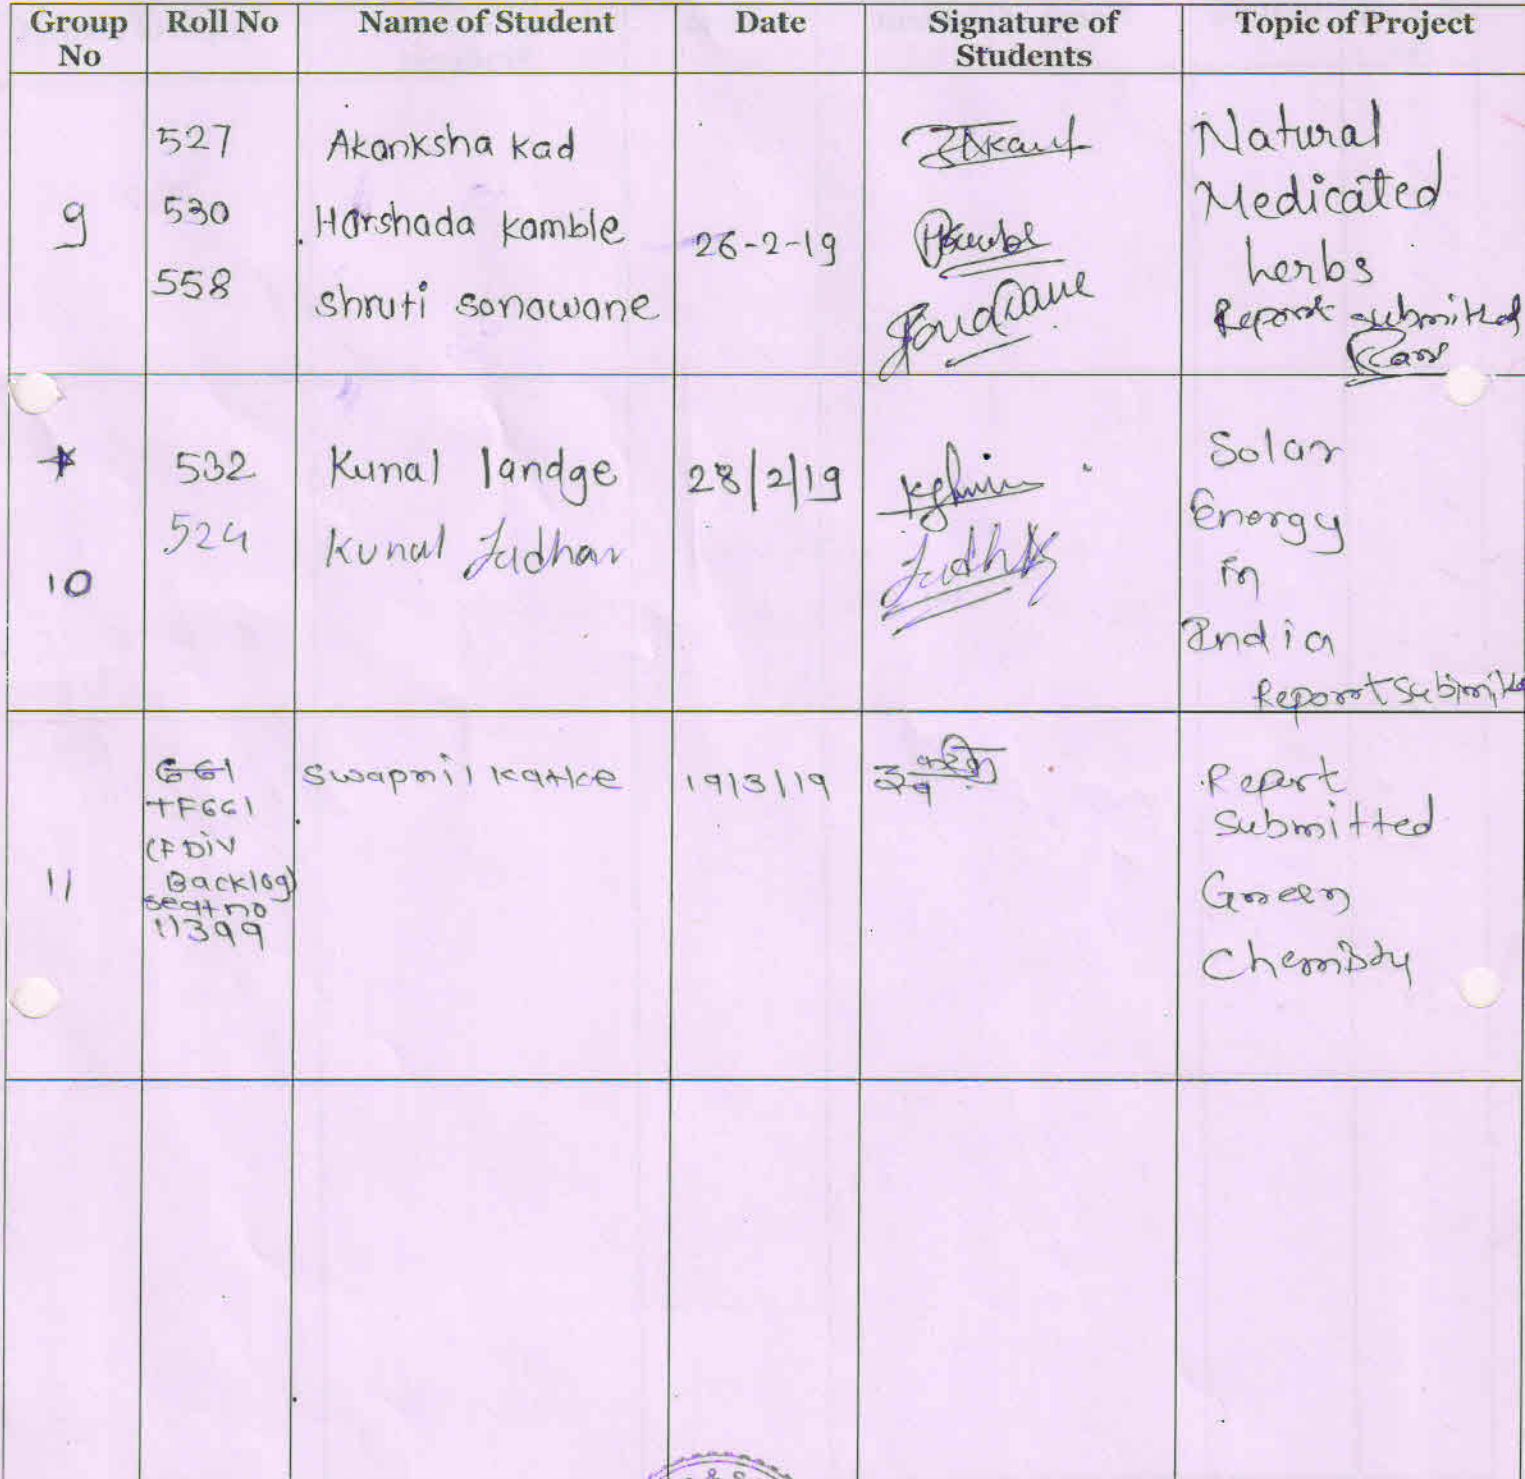 Group No Roll No Name of Student Date Signature of Students Topic of Project
9
527 Akanksha kad
530 Harshada kamble
558 shruti sonawane
26-2-19
Natural
Medicated
herbs
Report submitted
10
532 Kunal landge
524 Kunal Jadhav
28/2/19
Solar
Energy
in
India
Report submitte
11
661
TF661
(F Div
Backlog)
seat no
11399
Swapnil Katke
19/3/19
Report
submitted
Green
Chemistry